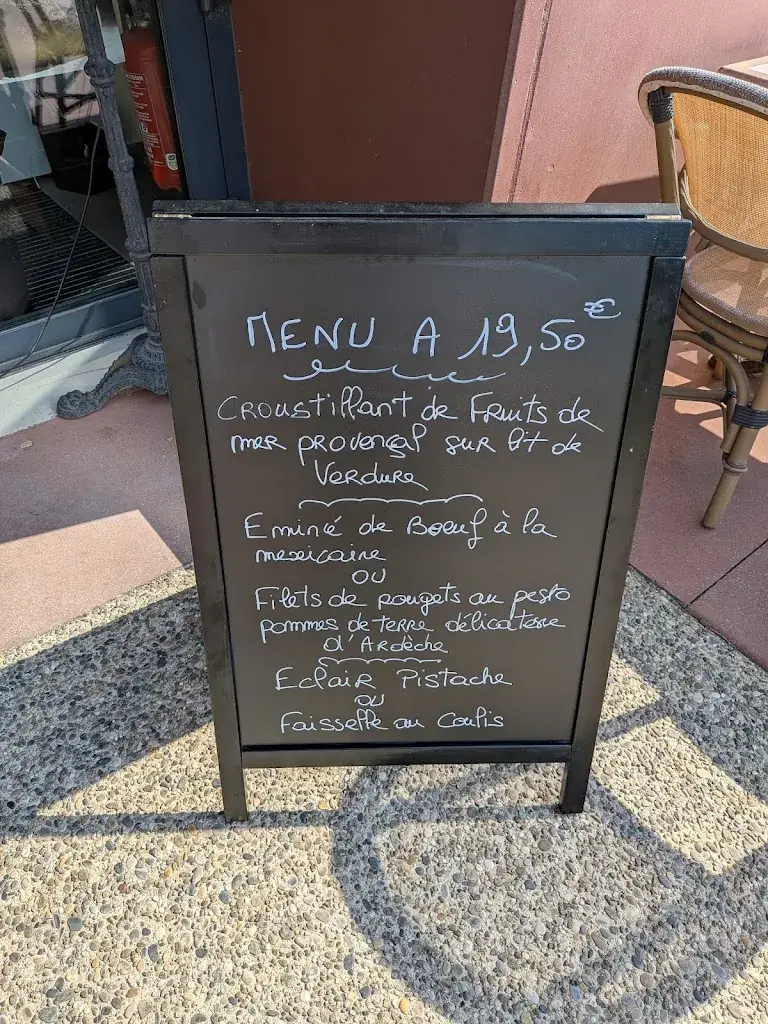 MENU A 19,50€
Croustillant de Fruits de
mer provençal sur lit de
Verdure
Eminé de Boeuf à la
mexicaine
ou
Filets de rougets au pesto
pommes de terre délicatesse
d'Ardèche
Eclair Pistache
ou
Faisselle au Coulis